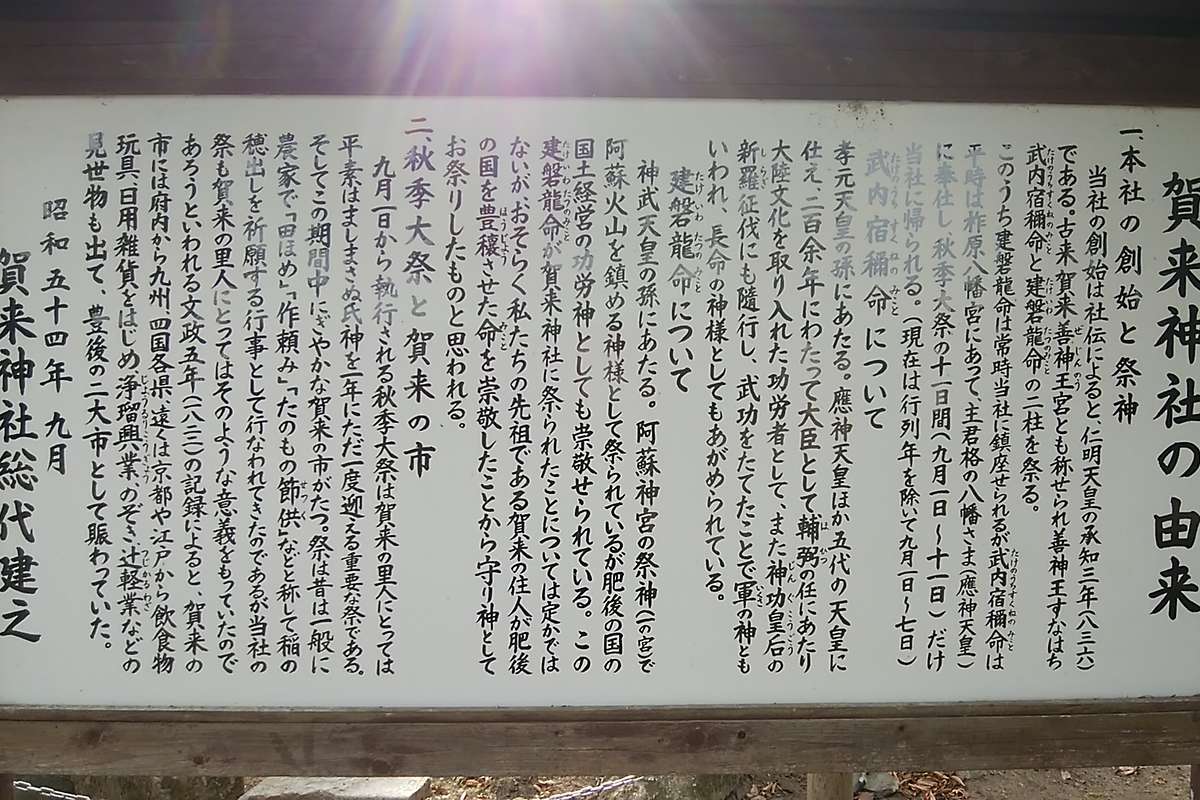 賀来神社の由来
一、本社の創始と祭神
当社の創始は社伝によると、仁明天皇の承知三年(八三六)
である。古来賀来善神王宮とも称せられ善神王すなはち
武内宿禰命と建磐龍命の二柱を祭る。
このうち建磐龍命は常時当社に鎮座せられるが武内宿禰命は
平時は柞原八幡宮にあって、主君格の八幡さま(應神天皇)
に奉仕し、秋季大祭の十一日間(九月一日〜十一日)だけ
当社に帰られる。(現在は行列年を除いて九月一日〜七日)
武内宿禰命について
孝元天皇の孫にあたる。應神天皇ほか五代の天皇に
仕え、二百余年にわたって大臣として輔弼の任にあたり
大陸文化を取り入れた功労者として、また神功皇后の
新羅征伐にも隨行し、武功をたてたことで軍の神とも
いわれ、長命の神様としてもあがめられている。
建磐龍命について
神武天皇の孫にあたる。阿蘇神宮の祭神(一の宮)で
阿蘇火山を鎮める神様として祭られているが肥後の国の
国土経営の功労神としても崇敬せられている。この
建磐龍命が賀来神社に祭られたことについては定かでは
ないが、おそらく私たちの先祖である賀来の住人が肥後
の国を豊穰させた命を崇敬したことから守り神として
お祭りしたものと思われる。
二、秋季大祭と賀来の市
九月一日から執行される秋季大祭は賀来の里人にとっては
平素はましまさぬ氏神を一年にただ一度迎える重要な祭である。
そしてこの期間中にぎやかな賀来の市がたつ。祭は昔は一般に
農家で「田ほめ」「作頼み」「たのもの節供」などと称して稲の
穂出しを祈願する行事として行なわれてきたのであるが当社の
祭も賀来の里人にとってはそのような意義をもっていたので
あろうといわれる文政五年(八二)の記録によると、賀来の
市には府内から九州、四国各県、遠くは京都や江戸から飲食物
玩具、日用雑貨をはじめ浄瑠興業のぞき辻軽業などの
見世物も出て、豊後の二大市として賑わっていた。
昭和五十四年九月
賀来神社総代建之